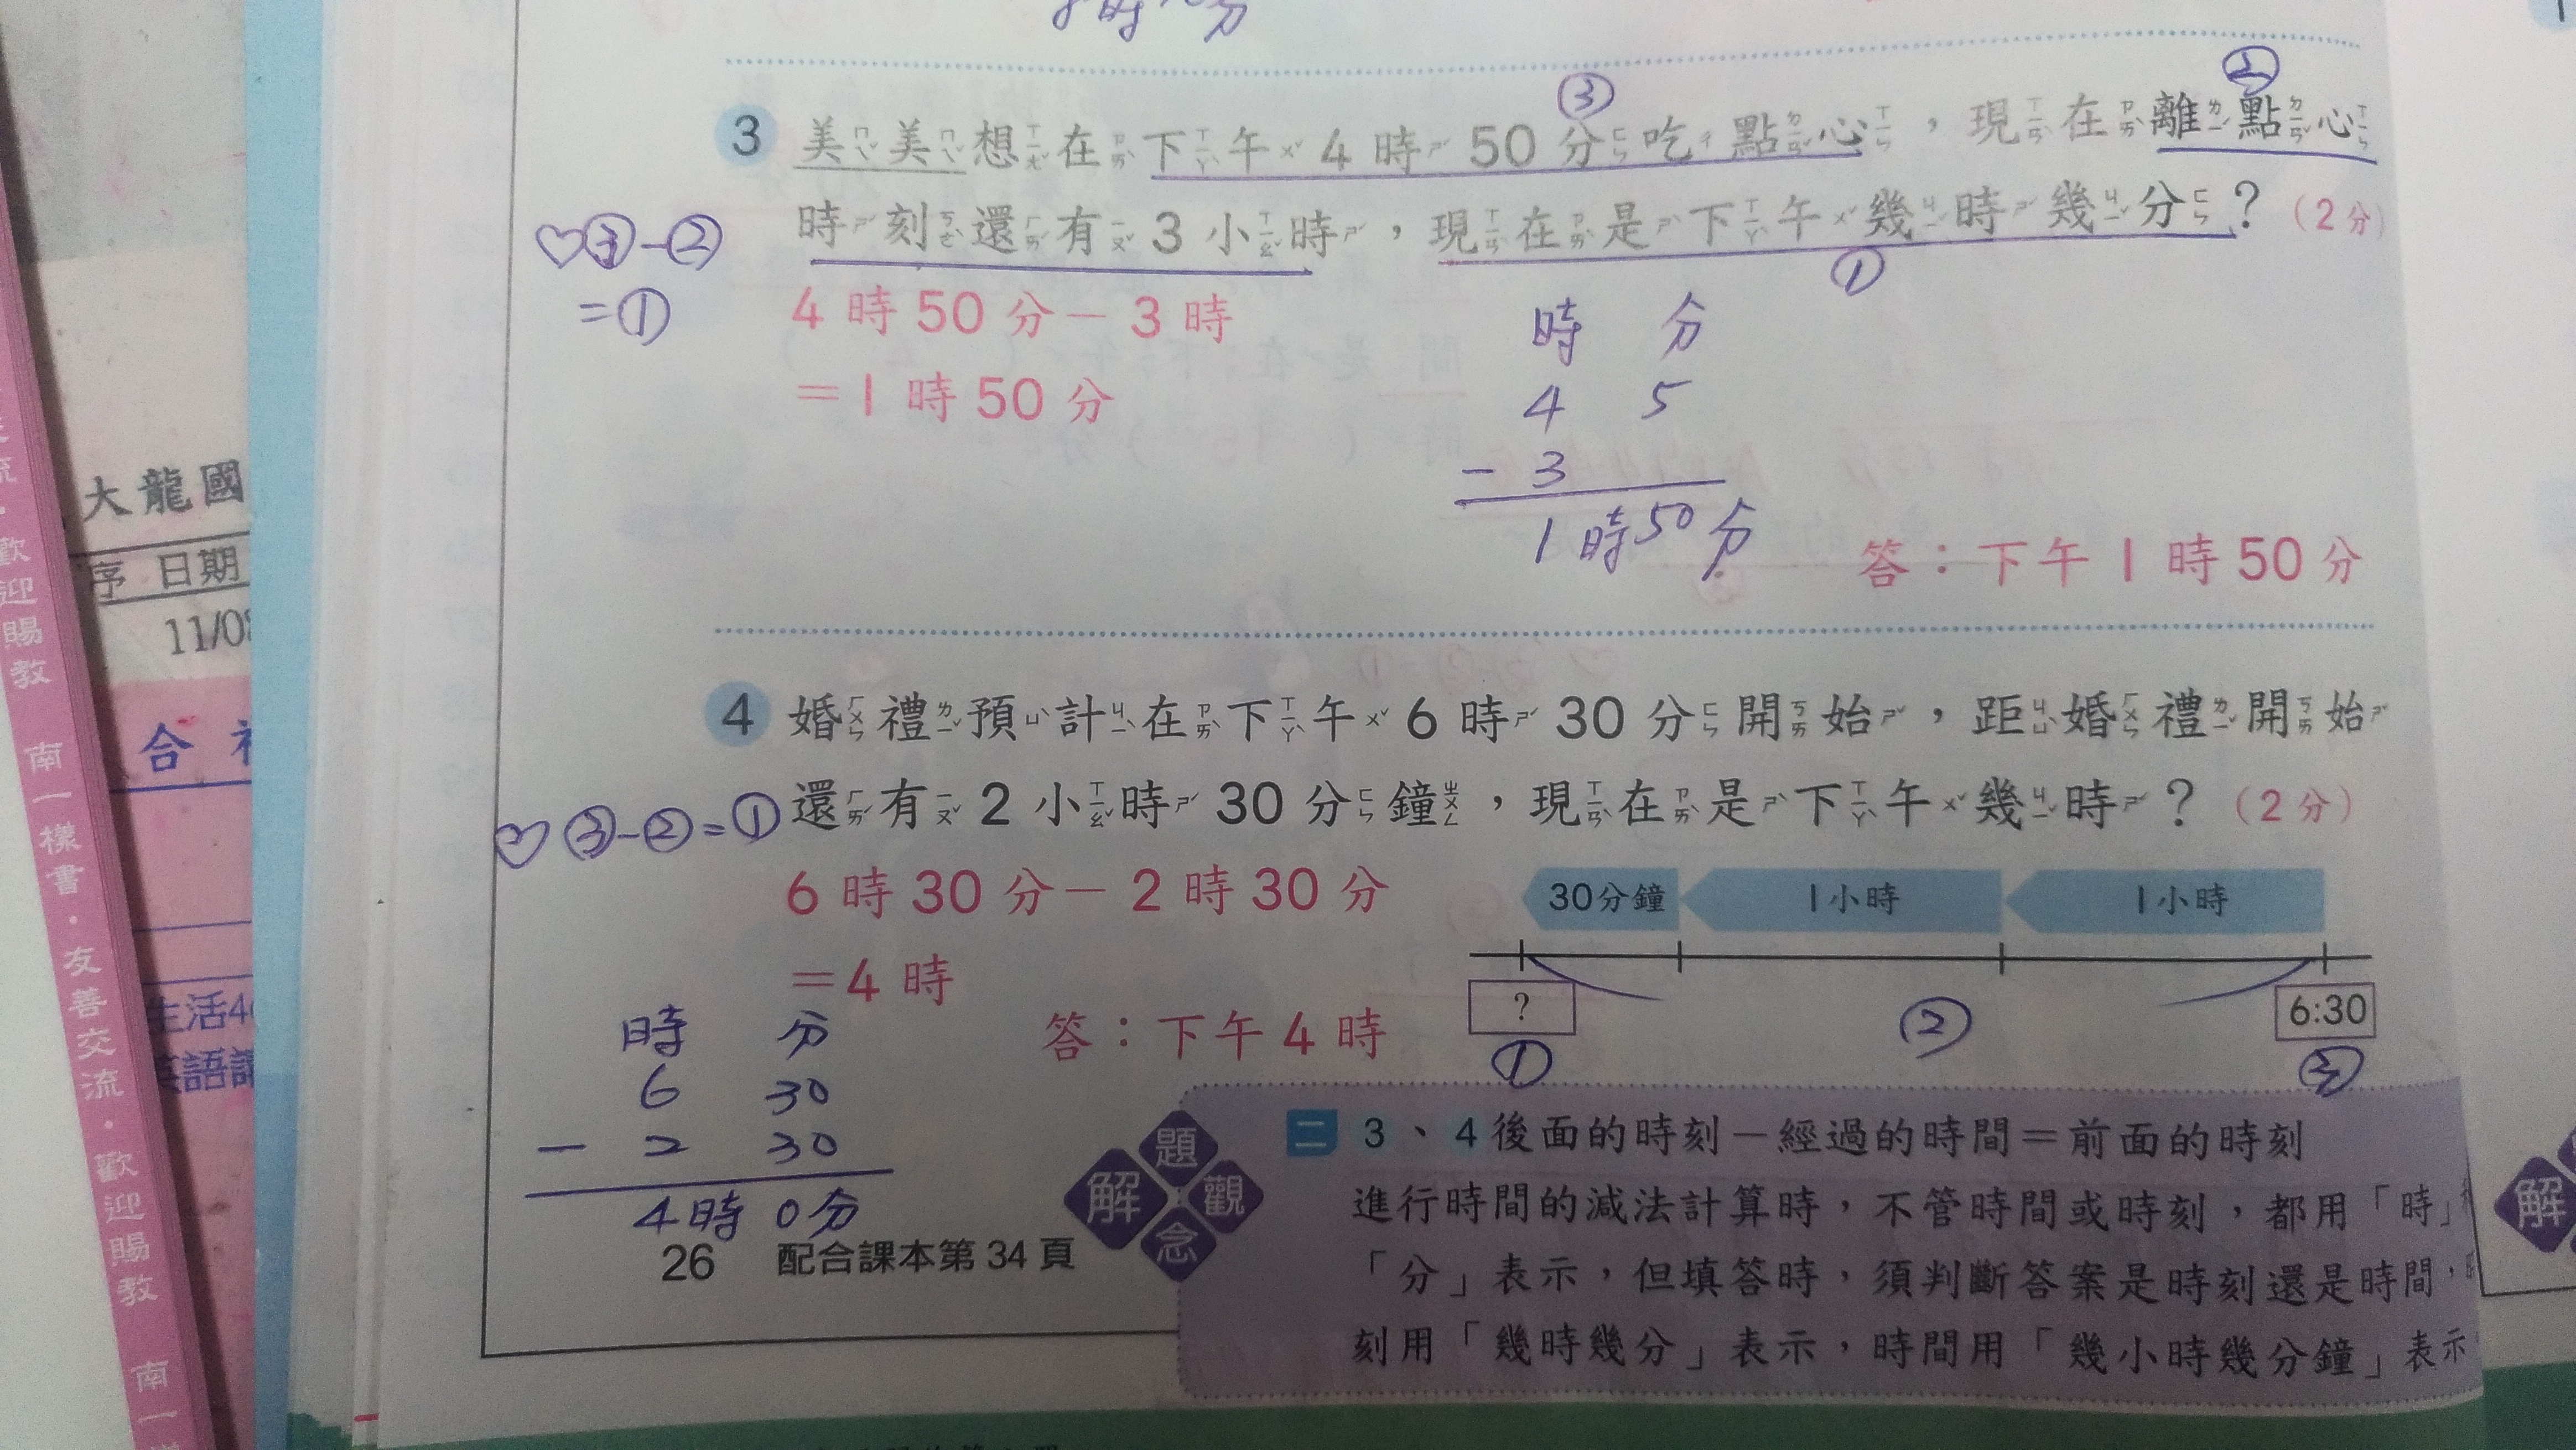 3 美美想在下午4時50分吃點心，現在離點心
時刻還有3小時，現在是下午幾時幾分？（2分）
③
②
①
♡③-②
=①
4時50分－3時
＝1時50分
時 分
4 5
- 3
1時50分
答：下午1時50分
4 婚禮預計在下午6時30分開始，距婚禮開始
還有2小時30分鐘，現在是下午幾時？（2分）
♡③-②=①
6時30分－2時30分
＝4時
答：下午4時
時 分
6 30
- 2 30
4時0分
30分鐘 1小時 1小時
? 6:30
① ② ③
解題觀念
二 3、4後面的時刻－經過的時間＝前面的時刻
進行時間的減法計算時，不管時間或時刻，都用「時」
「分」表示，但填答時，須判斷答案是時刻還是時間，
刻用「幾時幾分」表示，時間用「幾小時幾分鐘」表示
26 配合課本第34頁
大龍國
序 日期
11/08
合
生活
英語
歡迎賜教 南一樣書·友善交流·歡迎賜教 南一
解